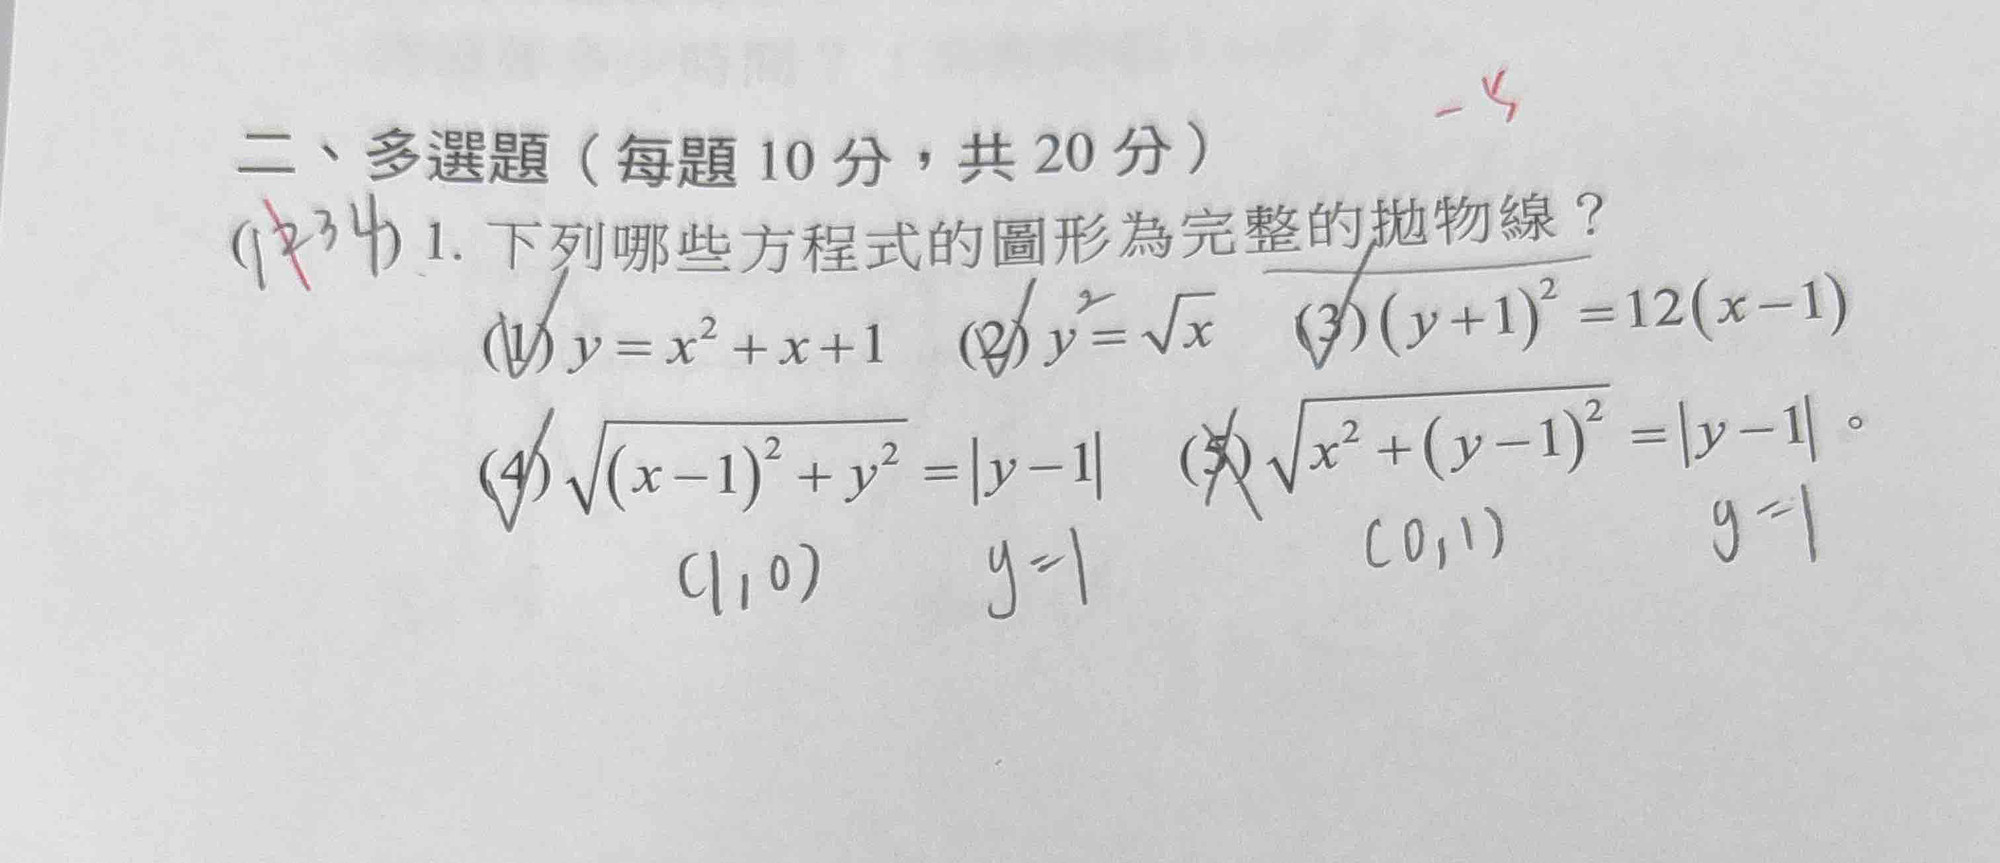 -4
二、多選題（每題 10 分，共 20 分）
(1234) 1. 下列哪些方程式的圖形為完整的拋物線？
(1) y = x² + x + 1 (2) y² = √x (3) (y+1)² = 12(x−1)
(4) √((x−1)² + y²) = |y−1| (5) √(x² + (y−1)²) = |y−1|。
(1,0) y=1 (0,1) y=1